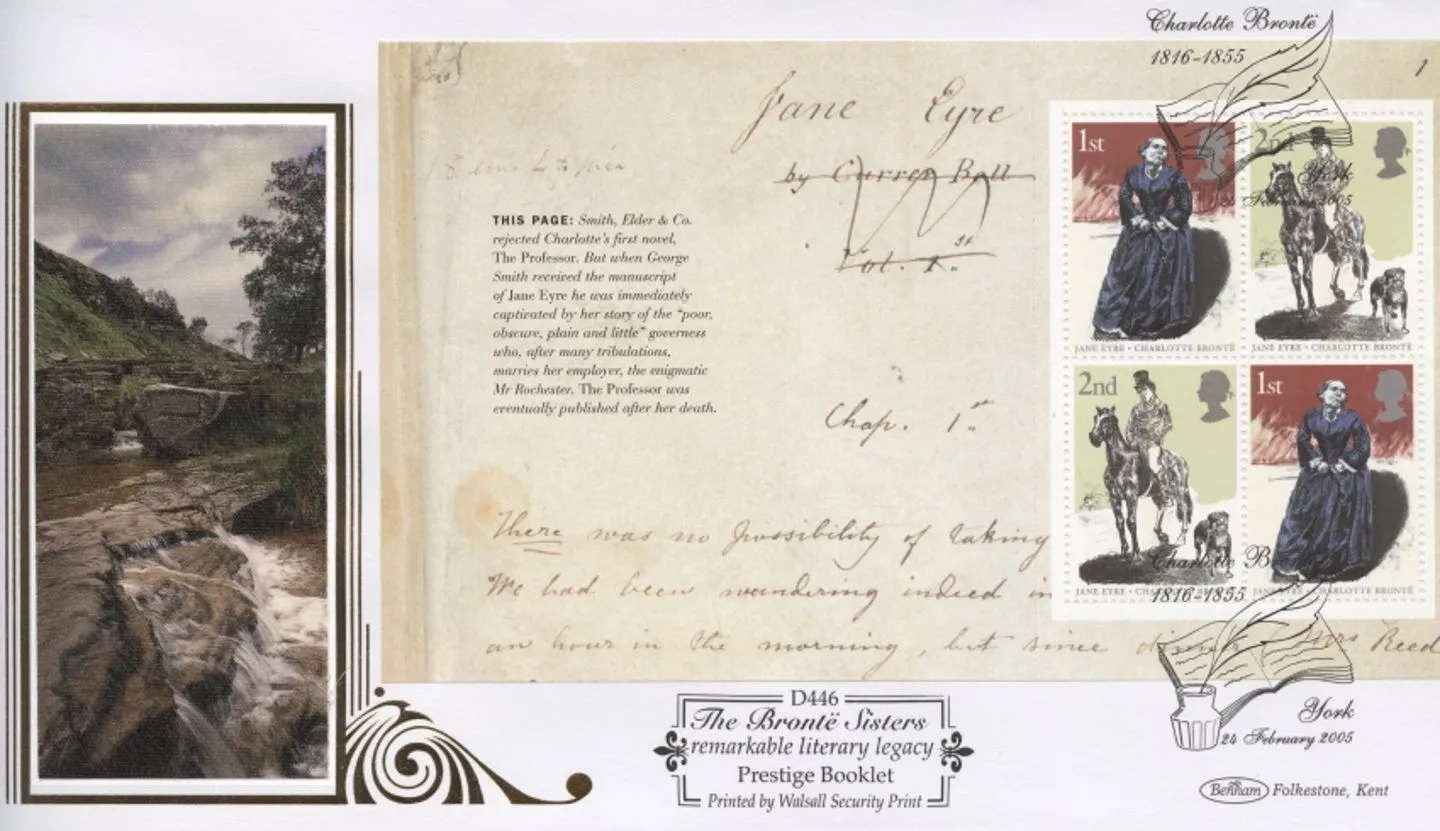 Charlotte Brontë
1816-1855
1
Jane Eyre
by Currer Bell
Vol. 1.st
THIS PAGE: Smith, Elder & Co.
rejected Charlotte's first novel,
The Professor. But when George
Smith received the manuscript
of Jane Eyre he was immediately
captivated by her story of the "poor,
obscure, plain and little" governess
who, after many tribulations,
marries her employer, the enigmatic
Mr Rochester. The Professor was
eventually published after her death.
Chap. 1st
There was no possibility of taking
We had been wandering indeed in
an hour in the morning, but since dinner Mrs Reed
1st
2nd
York
24 February 2005
JANE EYRE • CHARLOTTE BRONTË
JANE EYRE • CHARLOTTE BRONTË
2nd
1st
Charlotte Brontë
1816-1855
JANE EYRE • CHARLOTTE BRONTË
JANE EYRE • CHARLOTTE BRONTË
York
24 February 2005
D446
The Brontë Sisters
remarkable literary legacy
Prestige Booklet
Printed by Walsall Security Print
Benham Folkestone, Kent